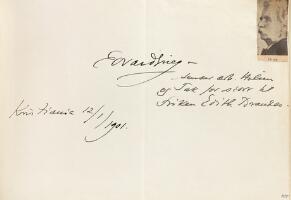 Edvard Grieg –
sender sin Hilsen
og Tak for svært til
Frøken Edith Brandes.
Kristiania 12/1/1901.